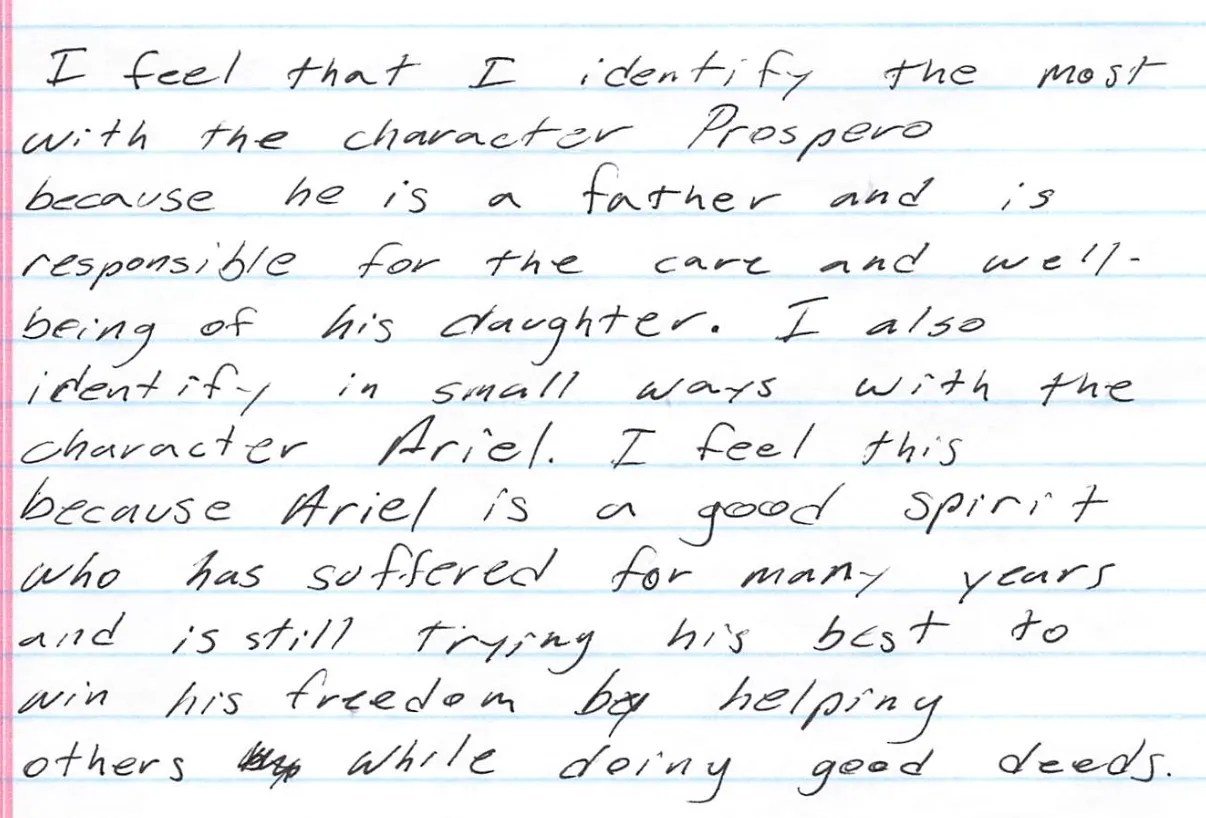 I feel that I identify the most
with the character Prospero
because he is a father and is
responsible for the care and well-
being of his daughter. I also
identify in small ways with the
character Ariel. I feel this
because Ariel is a good spirit
who has suffered for many years
and is still trying his best to
win his freedom by helping
others while doing good deeds.